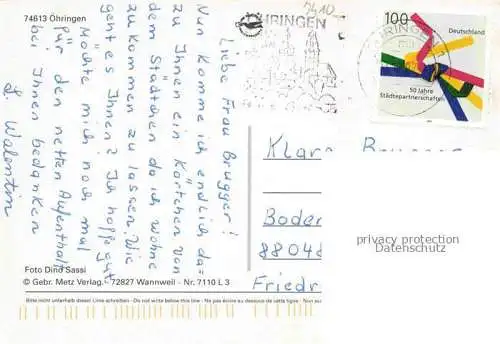 74613 Öhringen
Liebe Frau Brugger!
Nun komme ich endlich da-
zu Ihnen ein Kärtchen von
dem Städtchen da ich wohne
zu kommen zu lassen. Wie
geht es Ihnen? Ich hoffe gut
Möchte mich noch mal
für den netten Aufenthalt
bei Ihnen bedanken
S. Walentin
Foto Dino Sassi
© Gebr. Metz Verlag · 72827 Wannweil · Nr. 7110 L 3
Bitte nicht unterhalb dieser Linie schreiben · Do not write below this line · Ne pas écrire au dessous de cette ligne
7410
ÖHRINGEN
100
Deutschland
50 Jahre
Städtepartnerschaften
Klara
Boden
88048
Friedr
privacy protection
Datenschutz